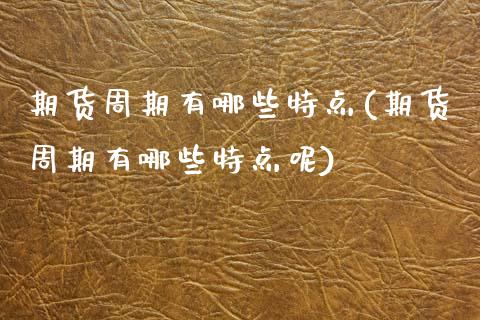 期货周期有哪些特点(期货
周期有哪些特点呢)